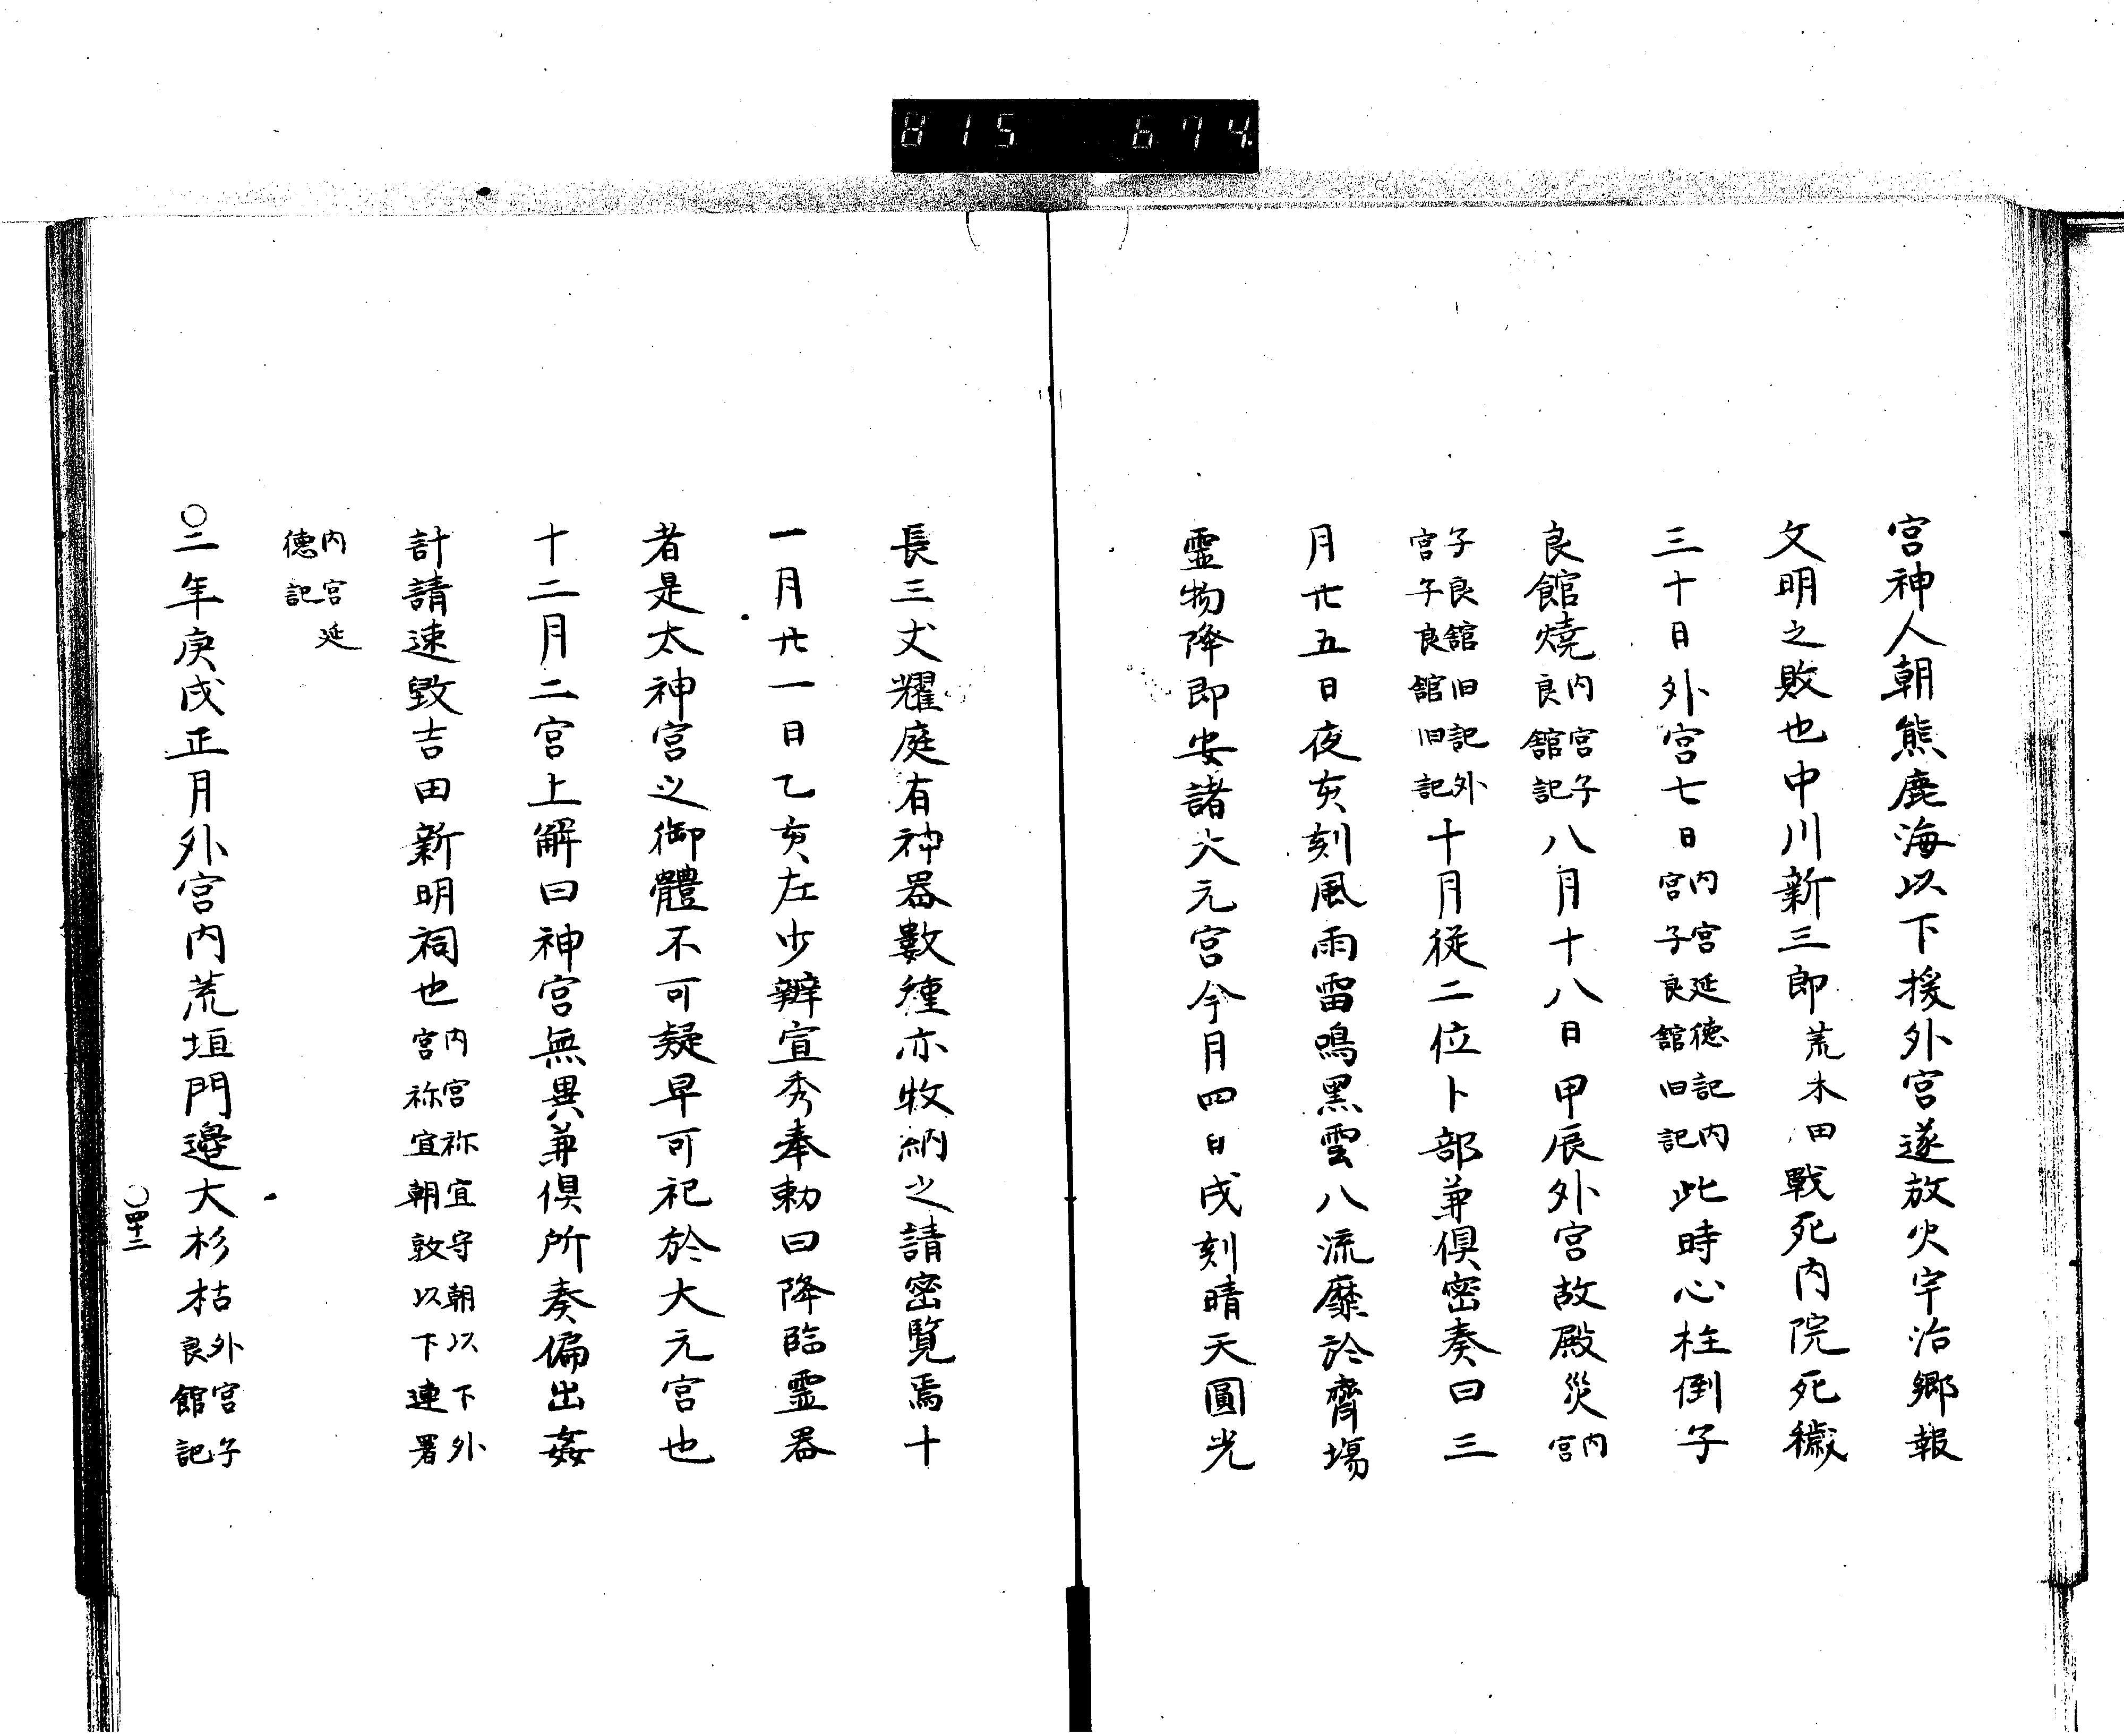 815 674
宮神人朝熊鹿海以下援外宮遂放火宇治郷報
文明之敗也中川新三郎荒木田戰死内院死穢
三十日外宮七日内宮延徳記内宮子良館旧記此時心柱倒子
良館燒内宮子良館記八月十八日甲辰外宮故殿災内宮
子良館旧記外宮子良館旧記十月從二位卜部兼倶密奏曰三
月廿五日夜亥刻風雨雷鳴黑雲八流靡於齊場
霊物降即安諸大元宮今月四日戌刻晴天圓光
長三丈耀庭有神器數種亦牧納之請密覽焉十
一月廿一日乙亥左少辨宣秀奉勅曰降臨霊器
者是太神宮之御體不可疑早可祀於大元宮也
十二月二宮上解曰神宮無異兼倶所奏偏出姦
計請速毀吉田新明祠也内宮祢宜守朝以下外宮祢宜朝敦以下連署
内宮延徳記
〇二年庚戌正月外宮内荒垣門邊大杉枯外宮子良館記
〇四十二